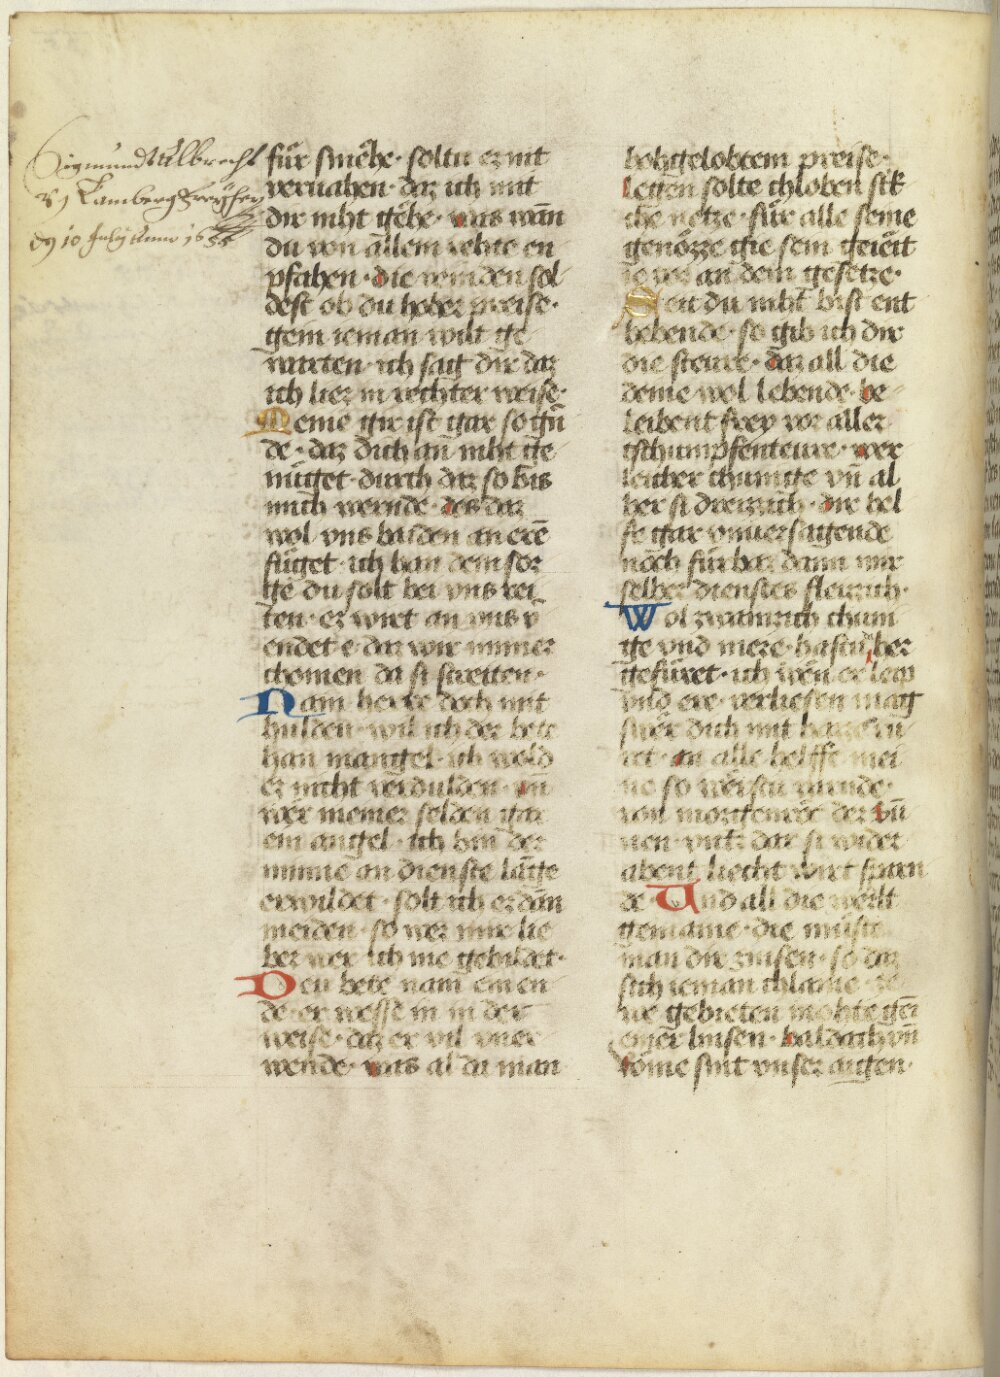 Sigmund Albrecht
für smehe · soltu ez nit
veruahen · daz ich mit
dir niht gehe · was man
du von allem rehte en
pfahen · die wirden sol
dest ob du hoher preise ·
gein ieman wilt ge
warten · ich sag dir daz
ich liez in rechter weise ·
Meine gir ist gar so gün
de · daz dich an niht ge
nüget · durch daz so bis
mich wernde · des daz
wol vns baiden an erē
füget · ich han dem sor
ge du solt bei vns rei
ten · er wirt an vns v
endet e daz wir immer
chomen da si streiten ·
Nain herre doch mit
hulden · wil ich der bete
han mangel · ich wold
ez nicht verdulden · vñ
wer meiner selden gar
ein angel · ich bin der
minne an dienste lange
erwildet · solt ich ez dañ
meiden · so wer mir lie
ber wer ich nie gebildet ·
Deu bete nam ein en
de · er wesse in in der
weise · daz er vil vner
wende · was al da man
hohgelobtem preise ·
legen solte chloben strik
che netze · für alle seine
genozze gie sein geleit
ie vor an dem gesetze ·
Seit du niht bist ent
hebende · so gib ich dir
die steure · daz all die
deine wol lebende · be
leibent frey vor aller
tschumpfenteure · wer
leuher chunige vñ al
her si dreizzich · dir hel
fe gar vnuersagende
noch fürbaz dann mir
selber dienstes fleizzich ·
Wol zwainzich chuni
ge vnd mere · hastu her
gefüret · ich wen er leip
vnd ere · verliesen mag
swer dich mit hazze rü
ret · an alle helffe mei
ne so werstu winde ·
von morgenröt der sun
nen · vntz daz si wider
abent liecht wirt span
de · Und all die werlt
gemaine · die müste
man dir zinsen · so daz
sich ieman chlaine ze
we gebieten mohte gen
einer linsen · baldach vñ
rome sint vnser augen ·